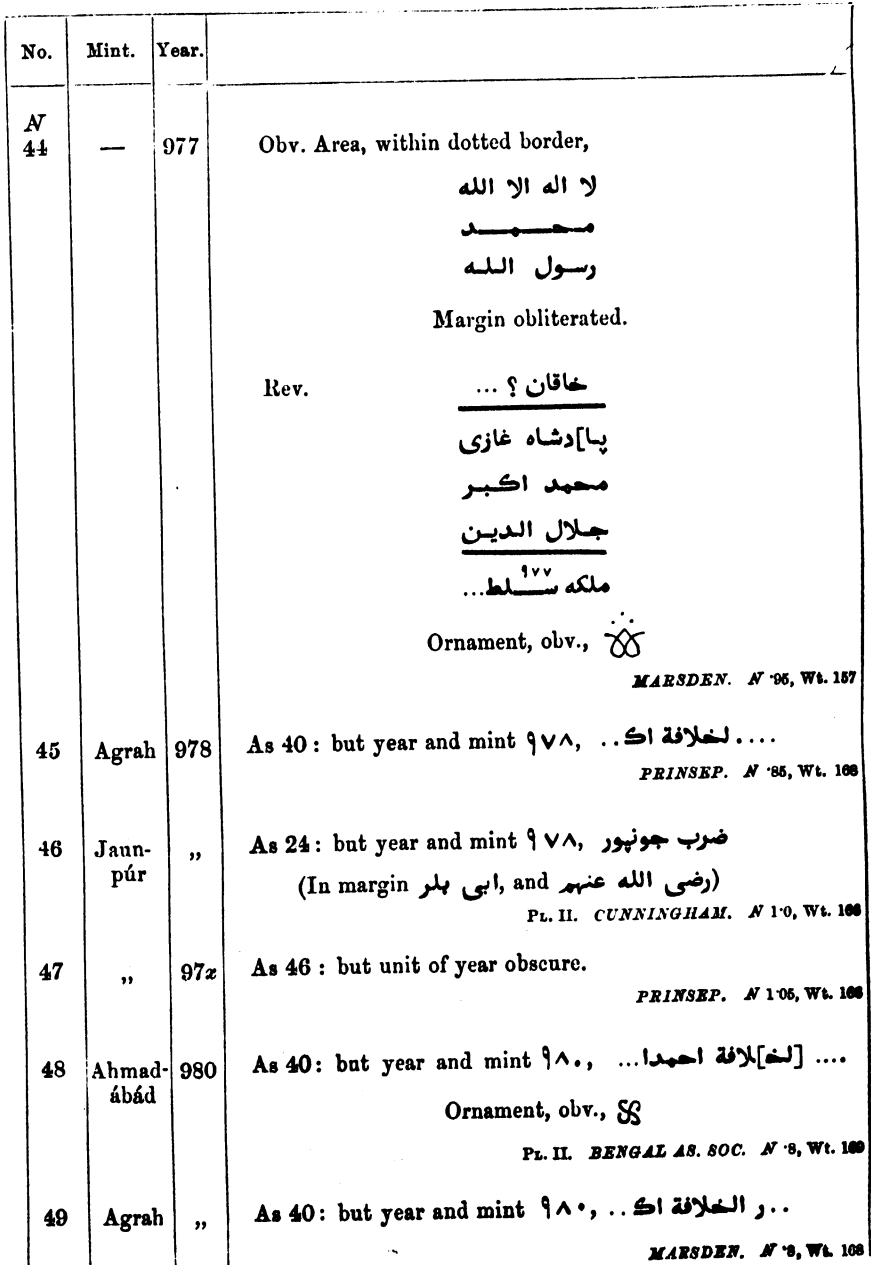 No. Mint. Year.
N
44 — 977 Obv. Area, within dotted border,
لا اله الا الله
محمد
رسول الله
Margin obliterated.
Rev. خاقان ؟ ...
پا]دشاه غازی
محمد اكبر
جلال الدين
٩٧٧
ملكه سلط...
Ornament, obv.,
MARSDEN. N ·95, Wt. 157
45 Agrah 978 As 40 : but year and mint ٩٧٨, ....لخلافة اك..
PRINSEP. N ·85, Wt. 168
46 Jaun- „ As 24 : but year and mint ٩٧٨, ضرب جونپور
púr (In margin ابی بلر, and رضی الله عنهم)
PL. II. CUNNINGHAM. N 1·0, Wt. 166
47 „ 97x As 46 : but unit of year obscure.
PRINSEP. N 1·05, Wt. 166
48 Ahmad- 980 As 40: but year and mint ٩٨٠, .... [لخ]لافة احمدا...
ábád
Ornament, obv.,
PL. II. BENGAL AS. SOC. N ·8, Wt. 169
49 Agrah „ As 40: but year and mint ٩٨٠, ..ر الخلافة اك..
MARSDEN. N ·8, Wt. 168